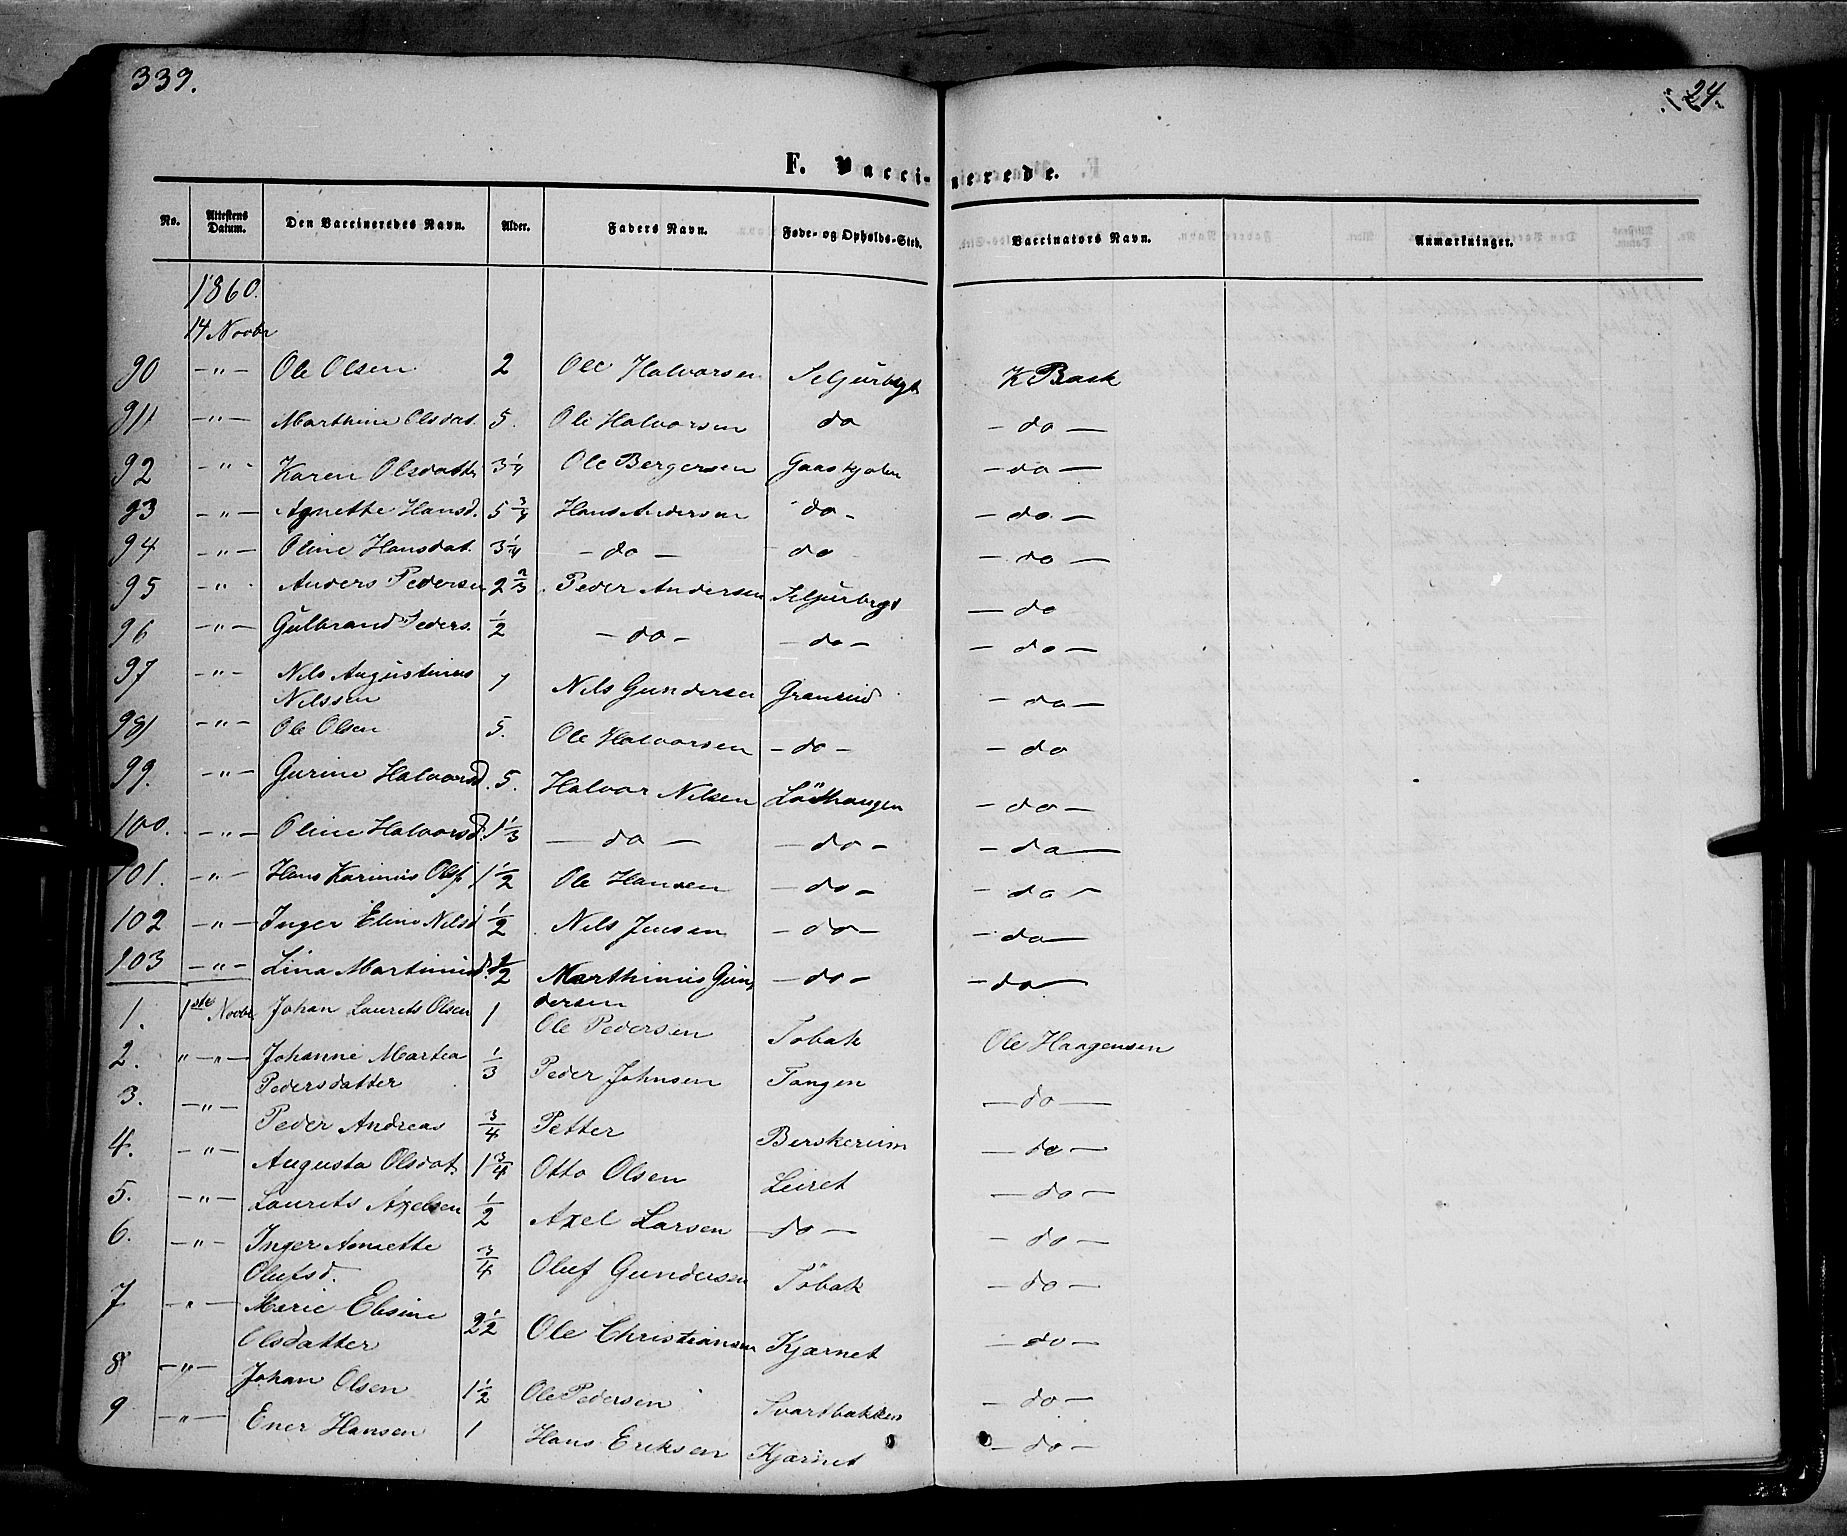 339.
24.
F. Vaccinerede.
No. Attestens Datum. Den Vaccineredes Navn. Alder. Faders Navn. Føde- og Opholds-Sted. Vaccinators Navn. Anmærkninger.
1860.
14 Novbr
90 -"- Ole Olsen 2 Ole Halvorsen K Bask
91 -"- Marthine Olsdat. 5. Ole Halvorsen do - do -
92 -"- Karen Olsdatter 3 1/4 Ole Bergersen - do -
93 -"- Agnethe Hansd. 5 3/4 Hans Andersen do - - do -
94 -"- Oline Hansdat. 3 1/4 - do - - do - do -
95 -"- Anders Pedersen 2 2/3 Peder Andersen - do
96 -"- Gulbrand Peders. 1/2 - do - - do - - do -
97 -"- Nils Augustinus Nilssen 1 Nils Gundersen Granrud - do -
98 -"- Ole Olsen 5. Ole Halvorsen - do - - do
99. -"- Gurine Halvorsd. 5. Halvor Nilsen - do -
100. -"- Oline Halvorsd. 1 1/3 - do - - do - - do -
101. -"- Hans Karinius Ols. 1 1/2 Ole Hansen - do - - do -
102 -"- Inger Eline Nilsd 1/2 Nils Jensen - do - - do -
103 -"- Lina Martinusd. 1/2 Marthinus Gundersen - do - - do -
1. 1ste Novbr Johan Laurets Olsen 1 Ole Pedersen Tobak Ole Haagensen
2. "-"- Johanne Martea Pedersdatter 1/3 Peder Johnsen Tangen - do -
3. -"- Peder Andreas 3/4 Petter Berskerum - do -
4. -"- Augusta Olsdat. 1 3/4 Otto Olsen Leiret - do -
5. -"- Laurits Axelsen 1/2 Axel Larsen - do - - do -
6. -"- Inger Annette Olufsd. 3/4 Oluf Gundersen Tobak - do -
7 -"- Marie Elisine Olsdatter 2 1/2 Ole Christiansen Kjærnet - do -
8 -"- Johan Olsen 1 1/2 Ole Pedersen Svartbakken - do -
9 -"- Ener Hansen 1 Hans Eriksen Kjærnet - do -